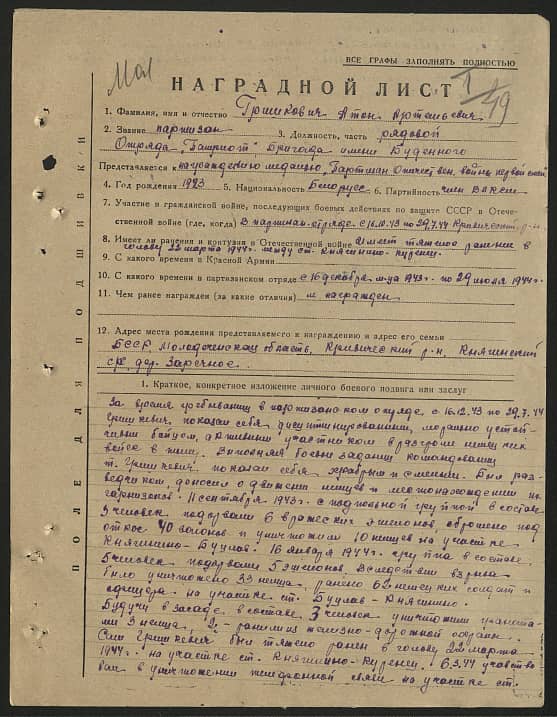 ВСЕ ГРАФЫ ЗАПОЛНЯТЬ ПОЛНОСТЬЮ
НАГРАДНОЙ ЛИСТ
1. Фамилия, имя и отчество Гришкович Антон
2. Звание партизан 3. Должность, часть рядовой
Отряда "Патриот" Бригада имени Буденного
Представляется к награждению медалью
4. Год рождения 1923 5. Национальность Белорусс 6. Партийность член ВЛКСМ
7. Участие в гражданской войне, последующих боевых действиях по защите СССР в Отече-
ственной войне (где, когда) В партизан. отряде с 16.12.43 по 29.7.44 Кривичский р-н.
8. Имеет ли ранения и контузия в Отечественной войне имеет тяжелое ранение в
голову 22 марта 1944 г. между ст. Княгинино-Куренец.
9. С какого времени в Красной Армии
10. С какого времени в партизанском отряде с 16 декабря м-ца 1943 г. по 29 июля 1944 г.
11. Чем ранее награжден (за какие отличия) н награжден
12. Адрес места рождения представляемого к награждению и адрес его семьи
БССР, Молодеченская область, Кривичский р-н, Княгинский
с/с, дер. Заречное.
1. Краткое, конкретное изложение личного боевого подвига или заслуг
За время пребывания в партизанском отряде с 16.12.43 по 29.7.44
Гришкевич показал себя дисциплинированным, морально устой-
чивым бойцом, активным участником в разгроме немецких
войск в тылу. Выполняя боевые задания командования
т. Гришкевич показал себя храбрым и смелым. Был раз-
ведчиком, доносил о движении немцев и местонахождении их
гарнизонов. 11 сентября 1943 г. с подрывной группой в составе
5 человек подорвали 6 вражеских эшелонов, сброшено под
откос 40 вагонов и уничтожили 10 немцев на участке
Княгинино-Буцлав. 16 января 1944 г. группа в составе
5 человек подорвали 5 эшелонов. Вследствии взрыва
было уничтожено 33 немца, ранено 62 немецких солдат и
офицера на участке ст. Буцлав-Княгинино.
Будучи в засаде, в составе 3 человек уничтожили
3 немца, 2 - ранили из железно-дорожной охраны.
Сам Гришкевич был тяжело ранен в голову 22 марта
1944 г. на участке ст. Княгинино-Куренец. 6.3.44 участво
вал в уничтожении телефонной связи на участке ст.
ПОЛЕ ДЛЯ ПОДШИВКИ